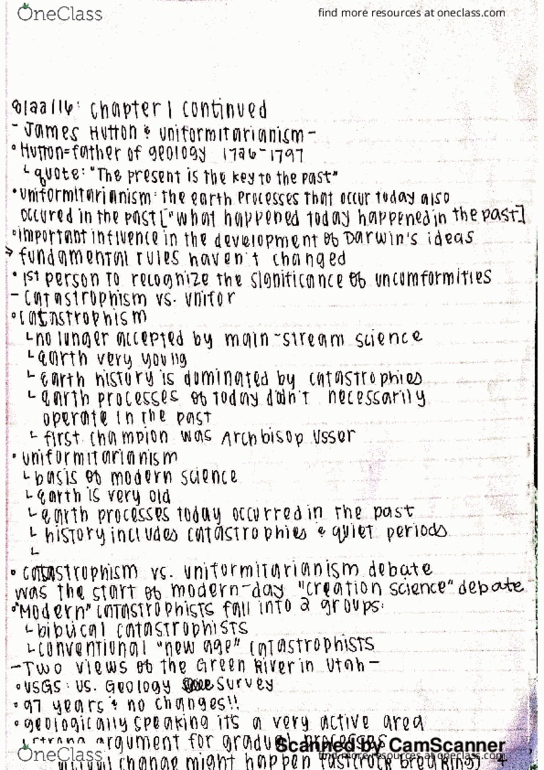 OneClass
find more resources at oneclass.com
8/22/16: Chapter 1 continued
- James Hutton & uniformitarianism -
• Hutton = father of geology 1726-1797
└ quote: "The present is the key to the past"
• uniformitarianism: the earth processes that occur today also
occured in the past ["what happened today happened in the past]
• important influence in the development of Darwin's ideas
→ fundamental rules haven't changed
• 1st person to recognize the significance of uncomformities
- Catastrophism vs. unifor
• Catastrophism
└ no longer accepted by main-stream science
└ earth very young
└ Earth history is dominated by catastrophies
└ earth processes of today didn't necessarily
operate in the past
└ first champion was Archbisop Ussor
• uniformitarianism
└ basis of modern science
└ earth is very old
└ earth processes today occurred in the past
└ history includes catastrophies & quiet periods
└
• catastrophism vs. uniformitarianism debate
was the start of modern-day "creation science" debate
• "Modern" catastrophists fall into 2 groups:
└ biblical catastrophists
└ conventional "new age" catastrophists
- Two views of the Green River in Utah -
• USGS: U.S. Geology Survey
• 97 years & no changes!!
• geologically speaking it's a very active area
└ strong argument for gradual processes
actual change might happen fast (rock breaking)
Scanned by CamScanner
OneClass
find more resources at oneclass.com